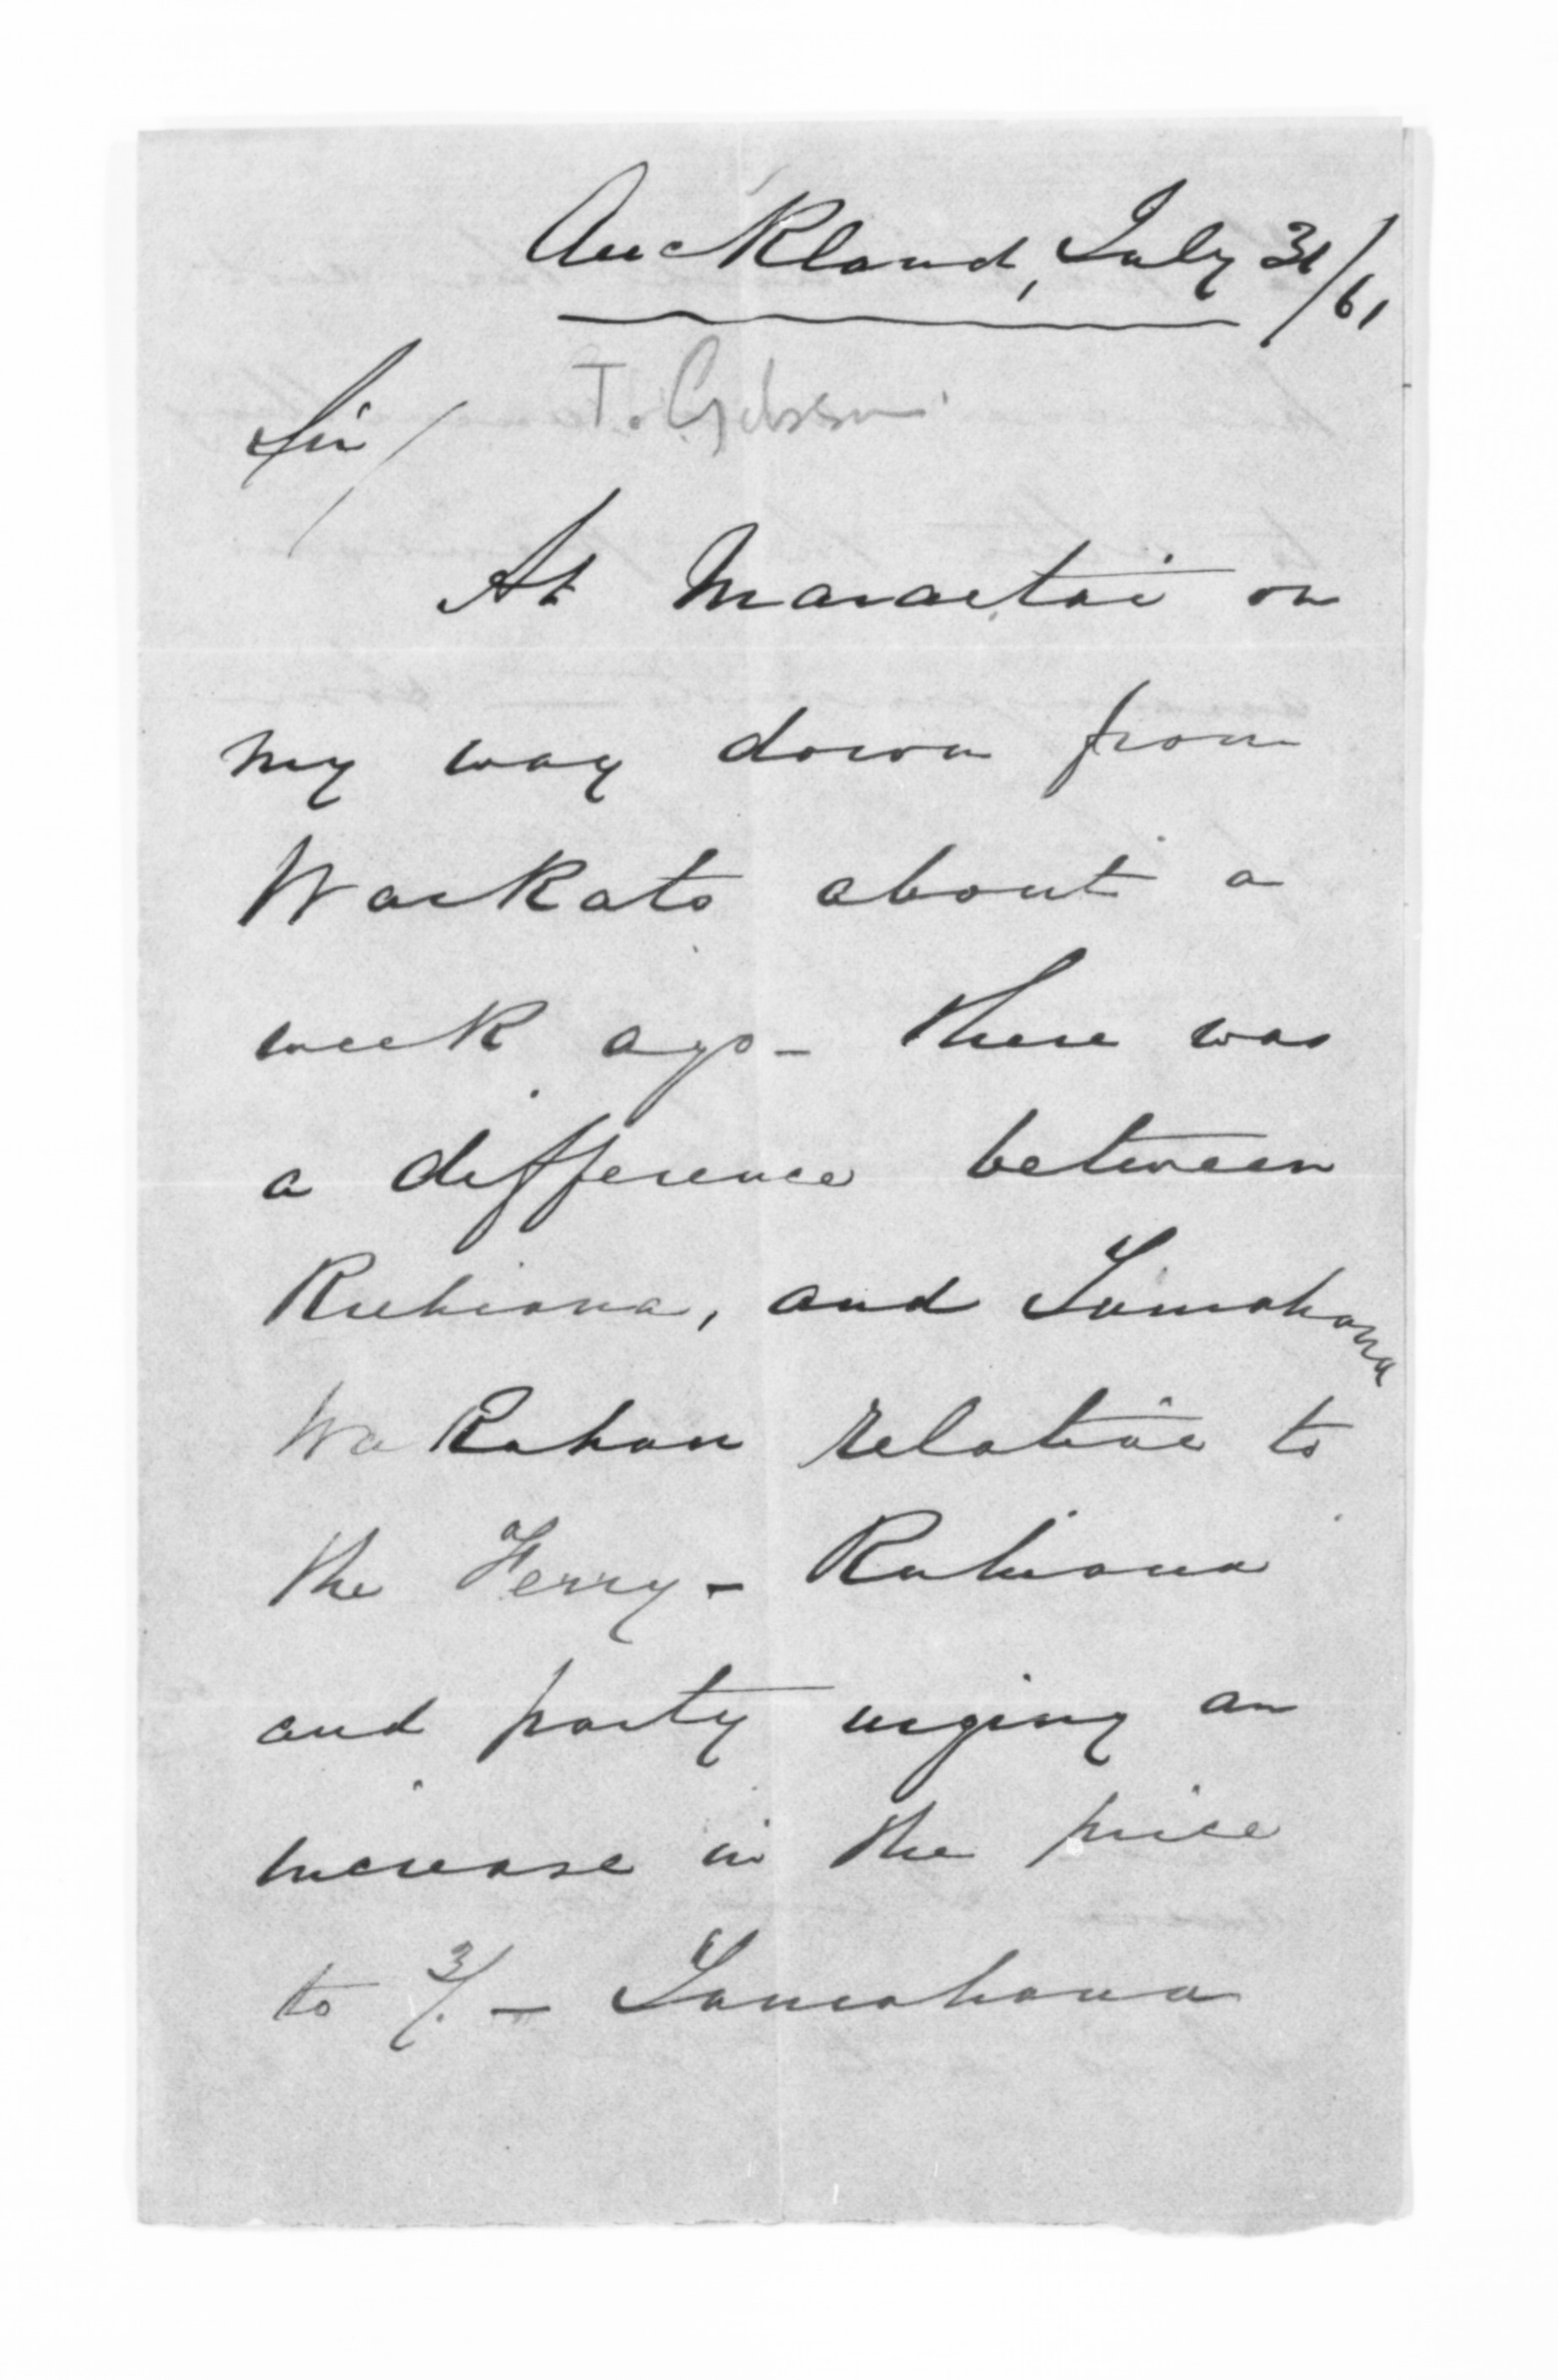 Auckland, July 31/61
T. Gibson.
Sir/
At Maraetai on
my way down from
Waikato about a
week ago - there was
a difference between
Ruhiana, and Tamahana
relative to
the Ferry - Ruhiana
and party urging an
increase in the price
to 3/. - Tamahana